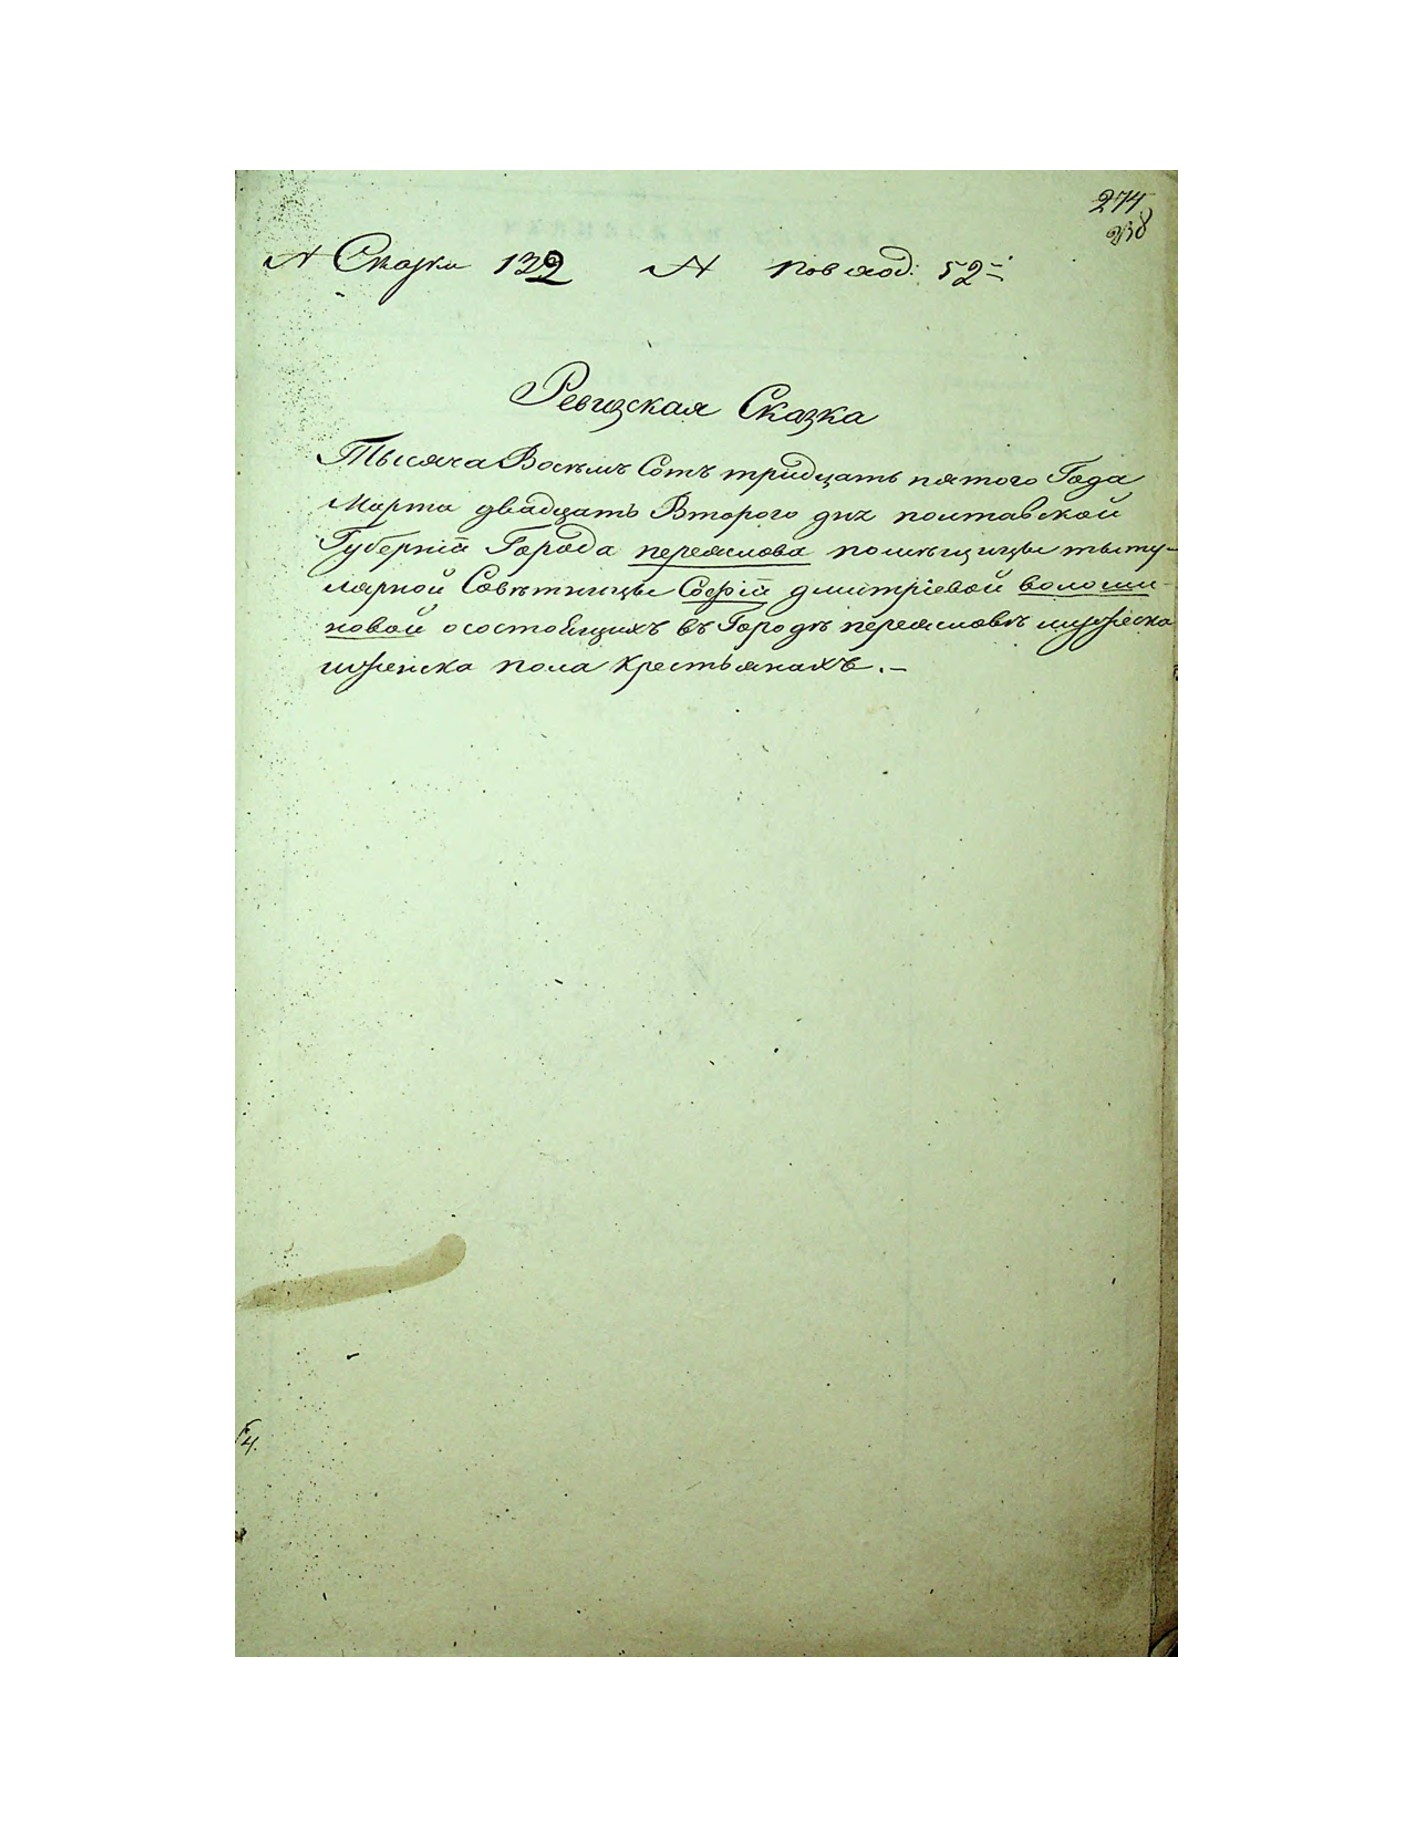 274
238
№ Сказки 132 № по входъ: 52-й
Ревизская Сказка
Тысяча Восѣмъ Сотъ тридцать пятого Года
Марта двадцать Второго дня полтавской
Губерніи Города переяслова помѣщицы титу-
лярной Совѣтницы Софіи дмитріевой волоши-
новой о состоящихъ въ Городѣ переясловѣ мужеска
и женска пола крестьянахъ.-